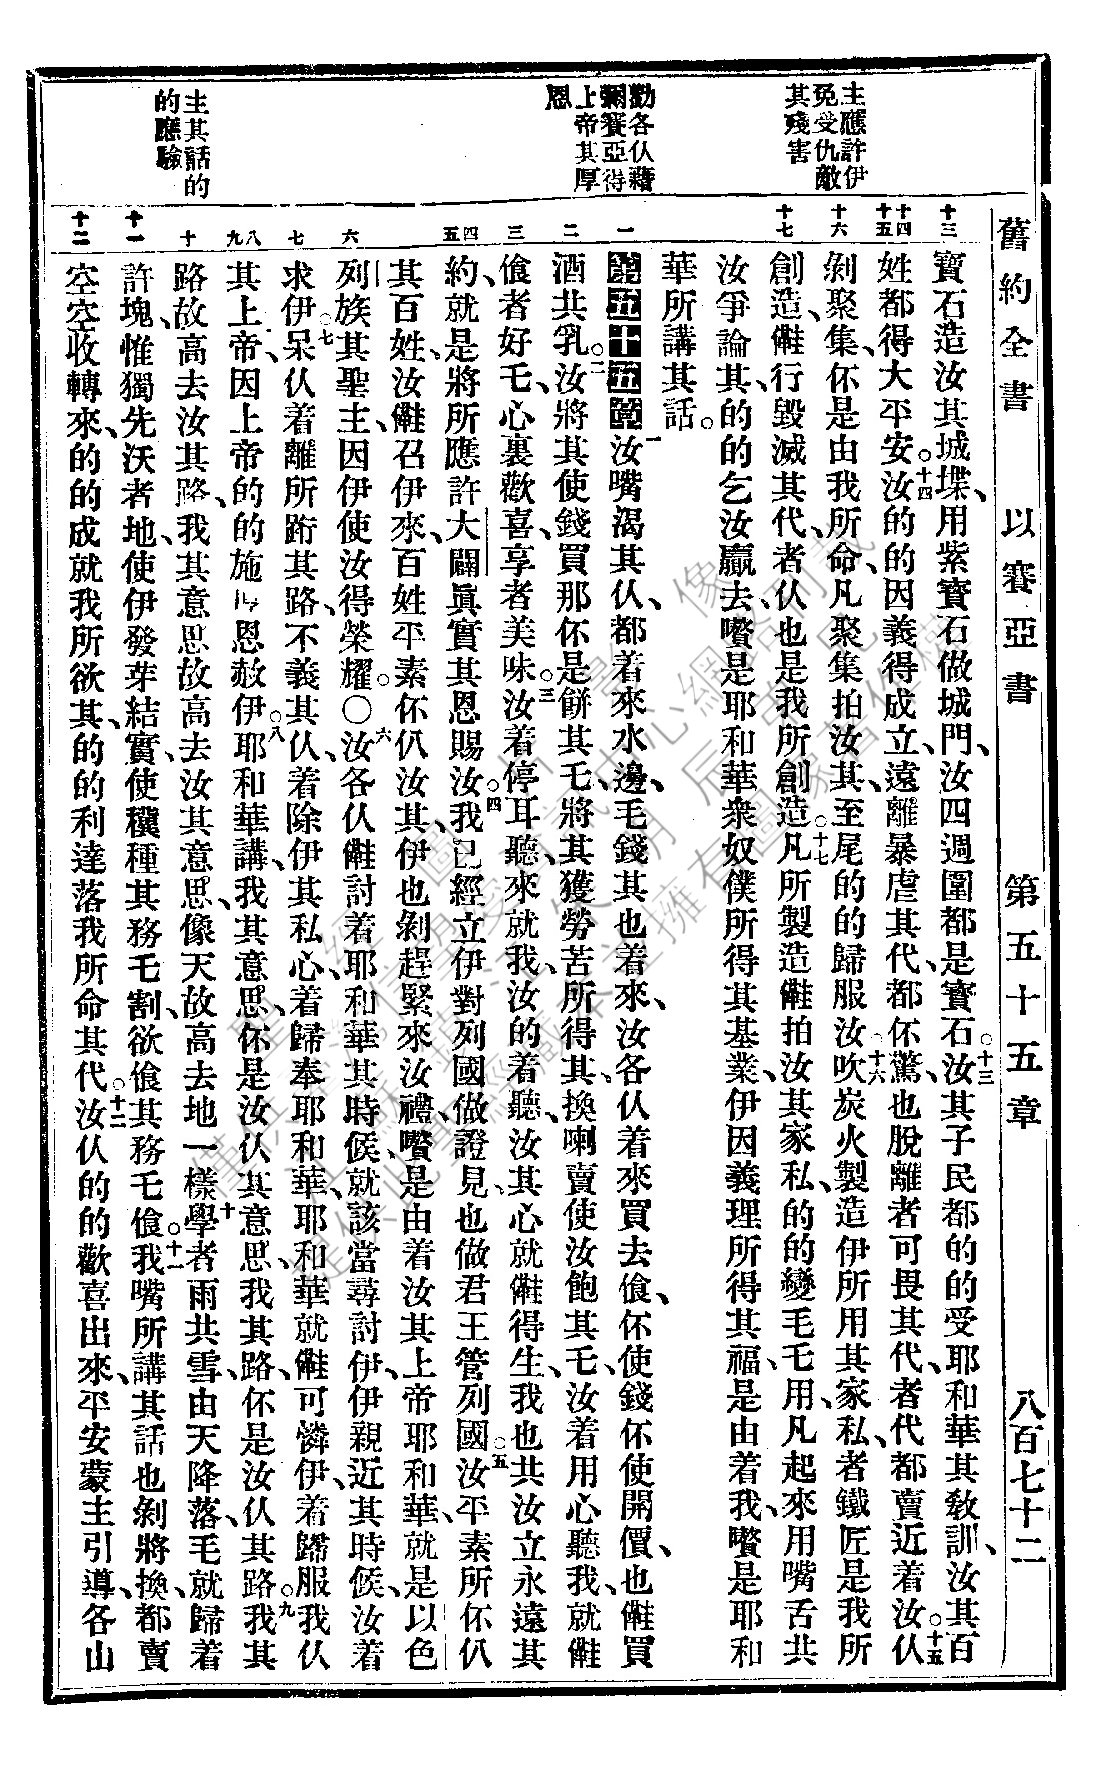 舊約全書 以賽亞書 第五十五章 八百七十二
主應許伊
免受仇敵
其殘害
勸各仈藉
彌賽亞得
上帝其厚
恩
主其話的
的應驗
十三
十四
十五
十六
十七
一
二
三
四
五
六
七
八
九
十
十一
十二
寶石造汝其城堞、用紫寶石做城門、汝四週圍都是寶石。十三汝其子民都的的受耶和華其教訓、汝其百
姓都得大平安。十四汝的的因義得成立、遠離暴虐其代、都伓驚、也脫離者可畏其代、者代都賣近着汝。十五仈
剝聚集、伓是由我所命、凡聚集拍汝其、至尾的的歸服汝。十六吹炭火製造伊所用其家私、者鐵匠是我所
創造、㑚行毀滅其代、者仈也是我所創造。十七凡所製造㑚拍汝其家私、的的變毛乇用、凡起來用嘴舌共
汝爭論其、的的乞汝贏去、嚽是耶和華衆奴僕所得其基業、伊因義理所得其福、是由着我、嚽是耶和
華所講其話。
第五十五章一汝嘴渴其仈、都着來水邊、毛錢其也着來、汝各仈着來買去飡、伓使錢伓使開價、也㑚買
酒共乳。二汝將其使錢買那伓是餅其乇、將其獲勞苦所得其、換喇賣使汝飽其乇、汝着用心聽我、就㑚
飡者好乇、心裏歡喜享者美味。三汝着停耳聽、來就我、汝的着聽、汝其心就㑚得生、我也共汝立永遠其
約、就是將所應許大闢眞實其恩賜汝。四我已經立伊對列國做證見、也做君王管列國。五汝平素所伓仈
其百姓、汝㑚召伊來、百姓平素伓仈汝其、伊也剝趕緊來汝禮、嚽是由着汝其上帝耶和華、就是以色
列族其聖主、因伊使汝得榮耀。〇六汝各仈㑚討着耶和華其時候、就該當尋討伊、伊親近其時候、汝着
求伊。七呆仈着離所跨其路、不義其仈、着除伊其私心、着歸奉耶和華、耶和華就㑚可憐伊、着歸服我仈
其上帝、因上帝的的施厚恩赦伊。八耶和華講、我其意思、伓是汝仈其意思、我其路、伓是汝仈其路。九我其
路故高去汝其路、我其意思故高去汝其意思、像天故高去地一樣。十學者雨共雪、由天降落、毛就歸着
許塊、惟獨先沃者地、使伊發芽結實、使穬種其務乇割、欲飡其務乇飡。十一我嘴所講其話、也剝將換、都賣
空空收轉來、的的成就我所欲其、的的利達落我所命其代。十二汝仈的的歡喜出來、平安蒙主引導、各山